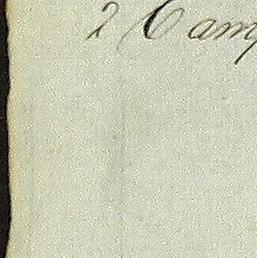 2 Camp